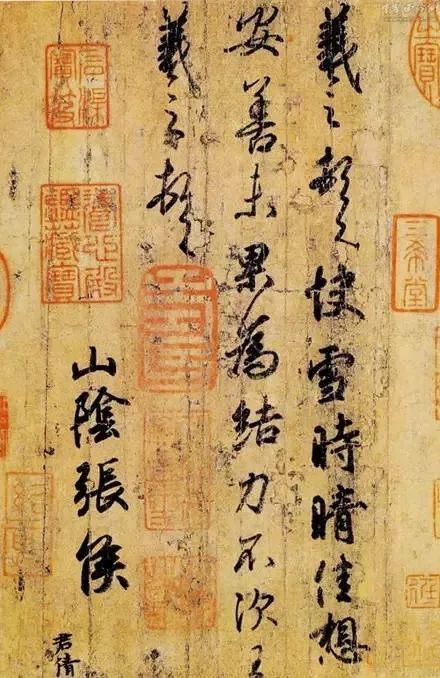 羲之頓首快雪時晴佳想
安善未果為結力不次王
羲之頓首
山陰張侯
君倩
三希堂
石渠
寶笈
養心殿
鑑藏寶